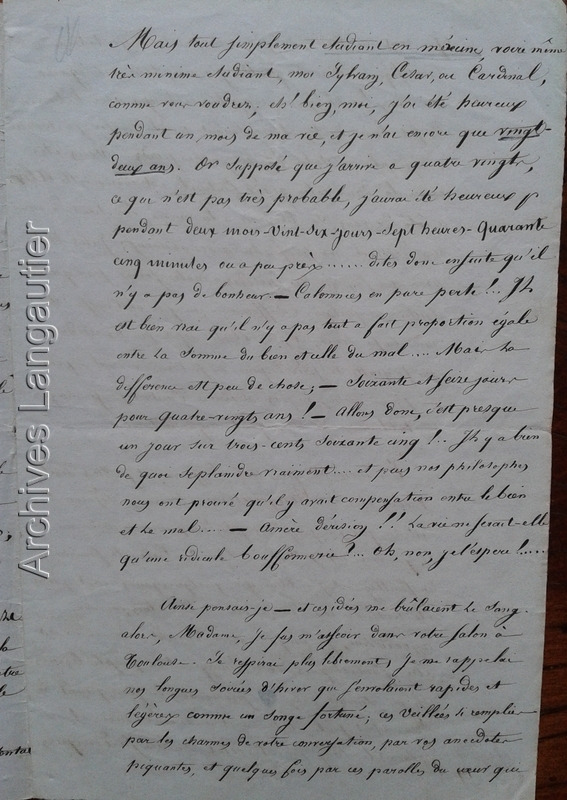 Mais tout simplement étudiant en médecine, voire même
très minime étudiant, moi Sylvain, Cesar, ou Cardinal,
comme vous voudrez; eh! bien, moi, j'ai été heureux
pendant un mois de ma vie, et je n'ai encore que vingt-
deux ans. Or supposé que j'arrive a quatre vingts,
ce qui n'est pas très probable, j'aurai été heureux
pendant deux mois-vint-six-jours-sept heures-quarante
cinq minutes ou a peu prèx...... dites donc ensuite qu'il
n'y a pas de bonheur. — Calomnies en pure perte!.. Il
est bien vrai qu'il n'y a pas tout a fait proportion égale
entre la somme du bien et celle du mal.... Mais la
différence est peu de chose; — soixante et seize jours
pour quatre-vingts ans! — Allons donc, c'est presque
un jour sur trois-cents soixante cinq!.. Il y a bien
de quoi se plaindre vraiment.... et puis nos philosophes
nous ont prouvé qu'il y avait compensation entre le bien
et le mal..... — Amère dérision!!! La vie ne serait-elle
qu'une ridicule bouffonnerie?... Oh, non, je l'espère!.....
Ainsi pensais-je — et ces idées me brûlaient le sang.
alors, Madame, je fus m'asseoir dans votre salon à
Toulouse. Je respirai plus librement, je me rappelai
nos longues soirées d'hiver qui s'envolaient rapides et
légères comme un songe fortuné; ces veillées si remplies
par les charmes de votre conversation, par vos anecdotes
piquantes, et quelques fois par ces parolles du cœur qui
Archives Langautier